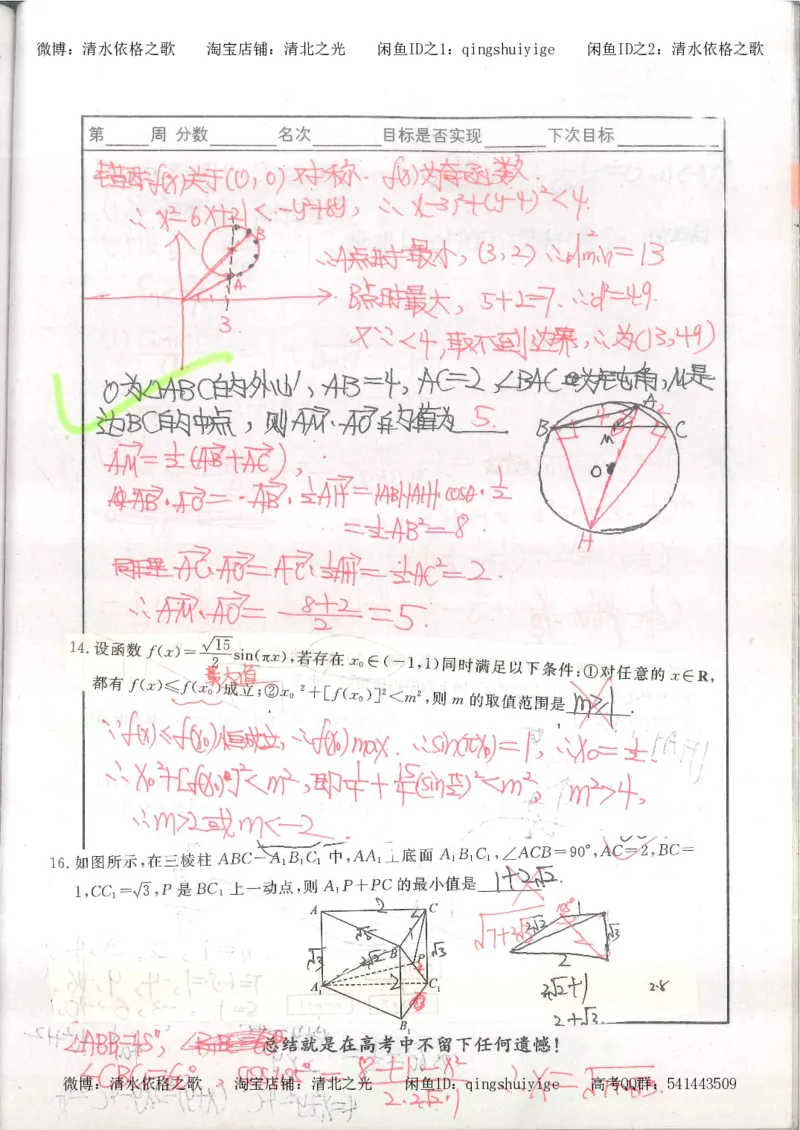 微博：清水依格之歌 淘宝店铺：清北之光 闲鱼ID之1：qingshuiyige 闲鱼ID之2：清水依格之歌
第____周 分数____ 名次____ 目标是否实现____ 下次目标____
f(x)关于(0,0)对称 f(x)为奇函数
∴x²-6x+21<-y²+8y, ∴(x-3)²+(y-4)²<4.
B
A
3.
∴A点时最小, (3,2) ∴d²min=13
B点时最大, 5+2=7. ∴d²=49.
又∵<4,取不到边界,∴为(13,49)
O为△ABC的外心, AB=4, AC=2, ∠BAC为钝角, M是
边BC的中点, 则AM·AO的值为 5.
A
4
2
B
M
C
O
H
AM=½(AB+AC),
AB·AO=AB·½AH=|AB||AH|cosθ·½
=½AB²=8
同理AC·AO=AC·½AH=½AC²=2.
∴AM·AO=(8+2)/2=5.
14.设函数 f(x)=√15/2 sin(πx),若存在 x₀∈(-1,1)同时满足以下条件:①对任意的 x∈R,
最大值
都有 f(x)≤f(x₀)成立;②x₀²+[f(x₀)]²<m²,则 m 的取值范围是 m≥1.
∵f(x)≤f(x₀)恒成立,∴f(x₀)max. ∴sin(πx₀)=1, ∴x₀=½.
∴x₀²+[f(x₀)]²<m²,即¼+15/4(sinπ/2)²<m², m²>4,
∴m>2或m<-2.
16.如图所示,在三棱柱 ABC-A₁B₁C₁ 中,AA₁⊥底面 A₁B₁C₁,∠ACB=90°,AC=2,BC=
1,CC₁=√3,P 是 BC₁ 上一动点,则 A₁P+PC 的最小值是 1+2√2.
A 2 C
√5 1
√3 2√2 B √3
P
A 2 C₁
B₁
√7+2√3
1
2√2 2 √3
2
2√2+1
2+√3
2.8
总结就是在高考中不留下任何遗憾!
微博：清水依格之歌 淘宝店铺：清北之光 闲鱼ID：qingshuiyige 高考QQ群：541443509